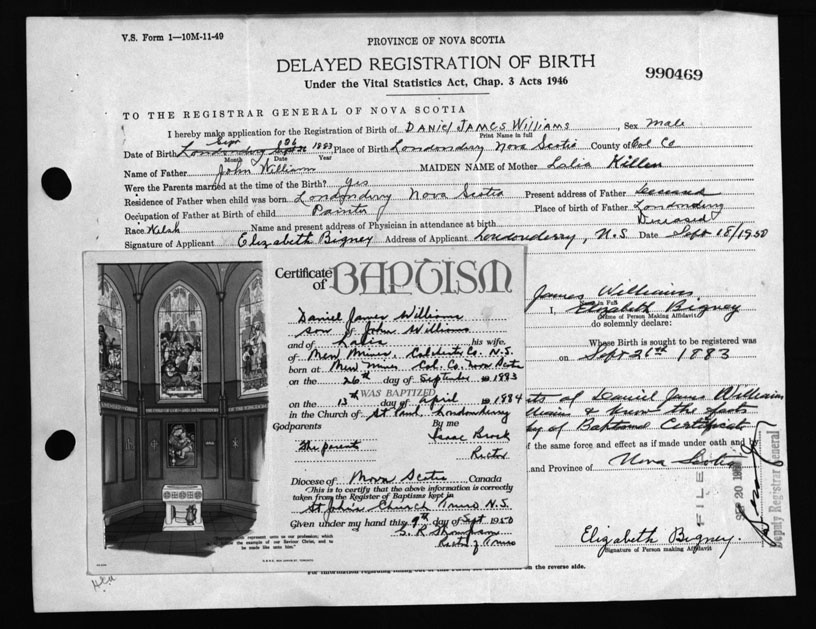 V.S. Form 1—10M-11-49
PROVINCE OF NOVA SCOTIA
DELAYED REGISTRATION OF BIRTH
Under the Vital Statistics Act, Chap. 3 Acts 1946
990469
TO THE REGISTRAR GENERAL OF NOVA SCOTIA
I hereby make application for the Registration of Birth of DANiel JAMES WILLIAMS, Sex Male
Print Name in full
Date of Birth Londonderry Sept 26 1883 Place of Birth Londonderry Nova Scotia County of Col Co
Month Date Year
Name of Father John William MAIDEN NAME of Mother Lalia Killen
Were the Parents married at the time of the Birth? yes
Residence of Father when child was born Londonderry Nova Scotia Present address of Father Deceased
Occupation of Father at Birth of child Painter Place of birth of Father Londonderry
Race Welsh Name and present address of Physician in attendance at birth Deceased
Signature of Applicant Elizabeth Bigney Address of Applicant Londonderry, N.S. Date Sept 18/1950
Certificate of BAPTISM
Daniel James Williams
son of John Williams
and of Lalia his wife,
of New Mines, Colchester Co. N.S.
born at New Mines Col. Co. Nova Scotia
on the 26th day of September 1883
WAS BAPTIZED
on the 13th day of April 1884
in the Church of St Paul, Londonderry
Godparents By me
The parents Isaac Brock
Rector
Diocese of Nova Scotia Canada
This is to certify that the above information is correctly
taken from the Register of Baptisms kept in
St John's Church Truro N.S.
Given under my hand this 9th day of Sept 1950
Rector of Truro
represent unto us our profession; which
the example of our Saviour Christ, and to
be made like unto him.
James Williams
Name in Full
I, Elizabeth Bigney
(Name of Person Making Affidavit)
do solemnly declare:
Whose Birth is sought to be registered was
on Sept 26th 1883
of Daniel James Williams
& know the facts
of Baptismal Certificate
of the same force and effect as if made under oath and
and Province of Nova Scotia
FILED
SEP 20 1950
Deputy Registrar General
Elizabeth Bigney.
Signature of Person making Affidavit
For information regarding filling out of this
on the reverse side.